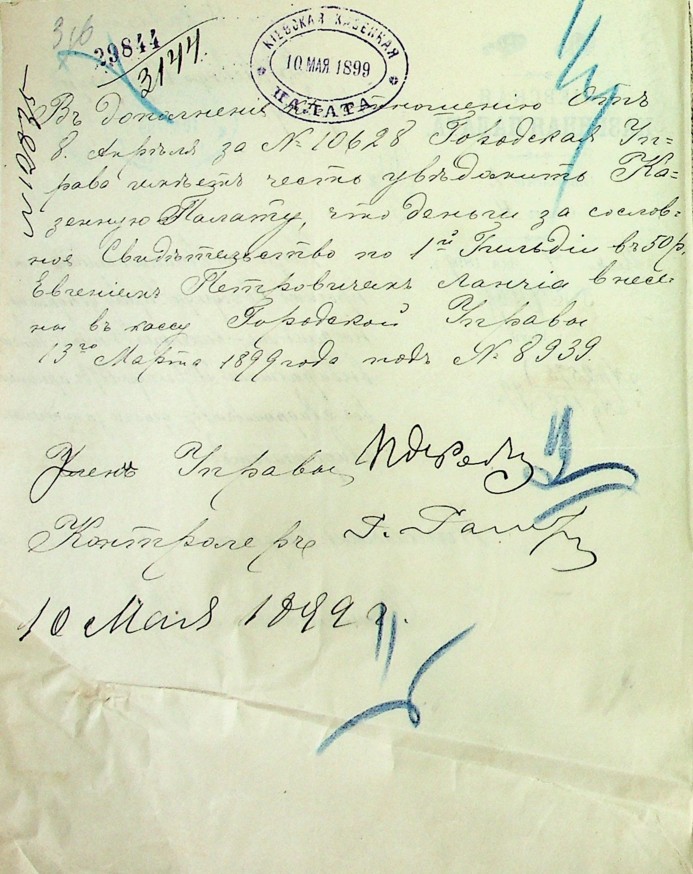 316
29844
3144
КІЕВСКАЯ КАЗЕННАЯ
10 МАЯ 1899
ПАЛАТА
N 12835
Въ дополненіе къ отношенію отъ
8. Апрѣля за № 10628 Городская Уп-
рава имѣетъ честь увѣдомить Ка-
зенную Палату, что деньги за сослов-
ное Свидѣтельство по 1й Гильдіи въ 50 р.
Евгеніемъ Петровичемъ Ланчіа внесе-
ны въ кассу Городской Управы
13го Марта 1899 года подъ № 8939.
Членъ Управы
Контролеръ
10 Мая 1899 г.